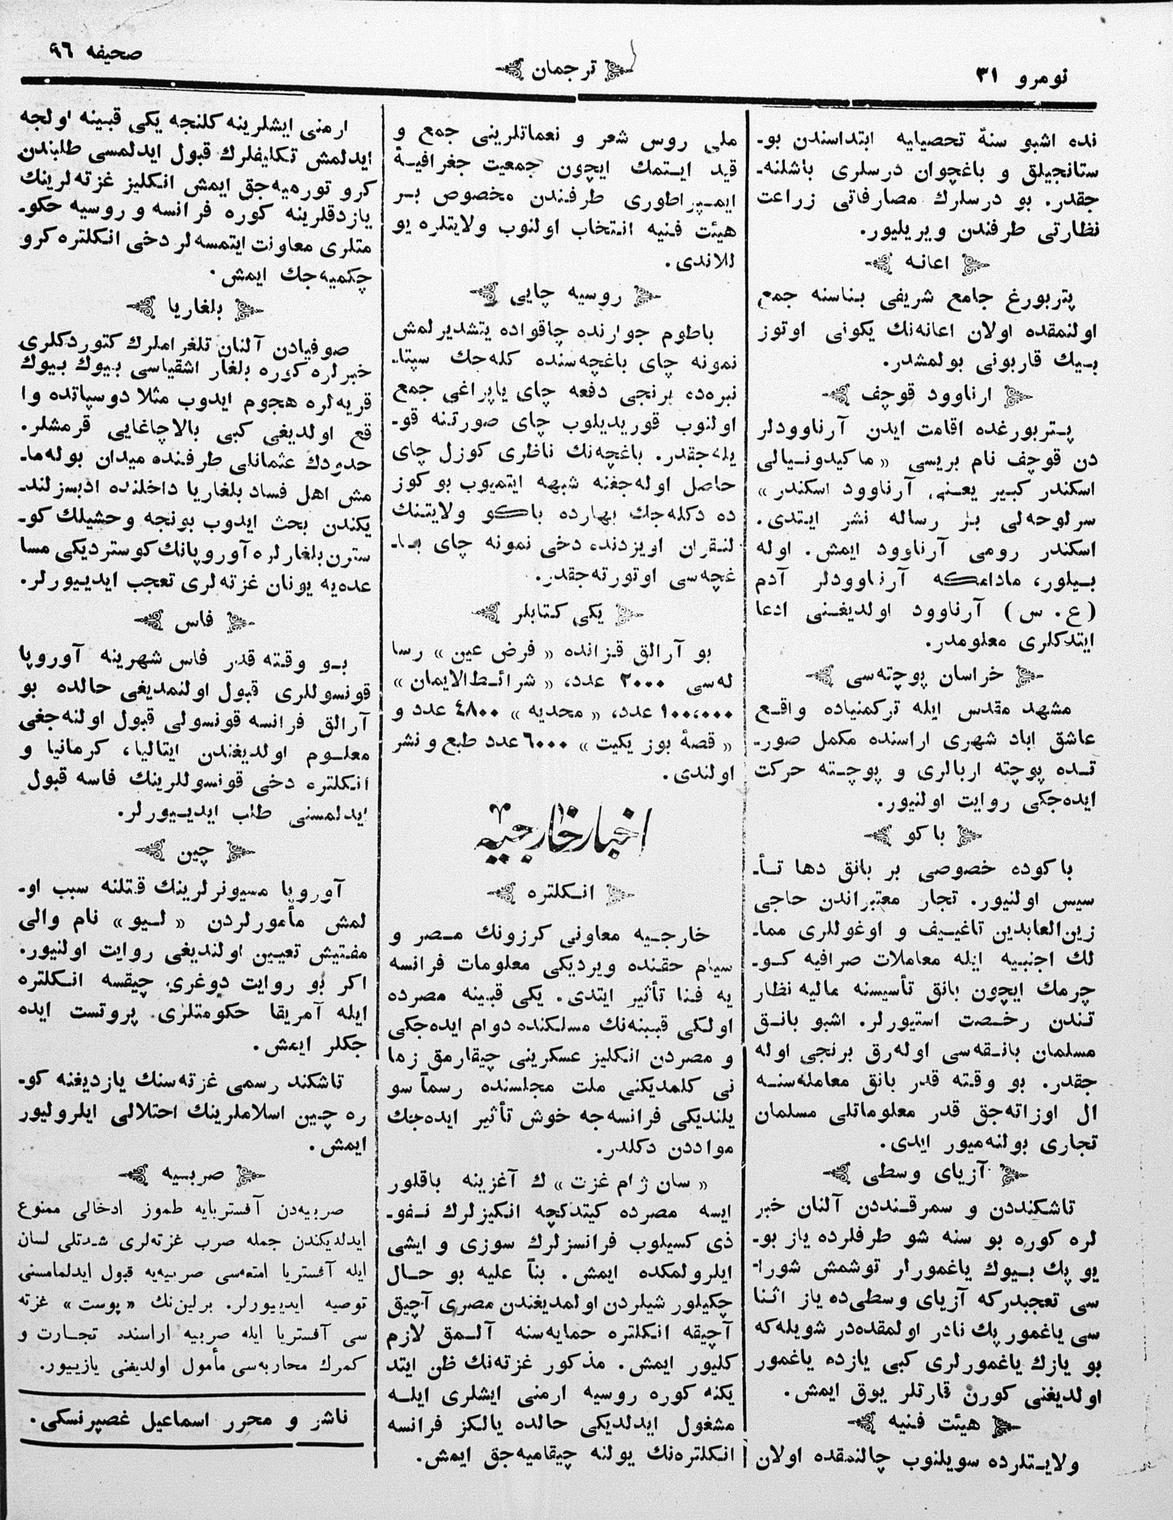 نومرو ٣١
ترجمان
صحيفه ٩٦
نده اشبو سنهٔ تحصيليه ابتداسندن بو-
ستانجيلق و باغچوان درسلری باشلنه-
جقدر. بو درسلرك مصارفاتی زراعت
نظارتی طرفندن ويريليور.
اعانه
پتربورغ جامع شريفی بناسنه جمع
اولنمقده اولان اعانه‌نك يكونی اوتوز
بيك قاربونی بولمشدر.
ارناوود قوچف
پتربورغده اقامت ايدن آرناوودلر
دن قوچف نام بريسی « ماكيدونيالی
اسكندر كبير يعنی آرناوود اسكندر »
سرلوحه‌لی بر رساله نشر ايتدی.
اسكندر رومی آرناوود ايمش. اوله
بيلور، مادامكه آرناوودلر آدم
(ع. س) آرناوود اولديغنی ادعا
ايتدكلری معلومدر.
خراسان پوچته‌سی
مشهد مقدس ايله تركمنياده واقع
عاشق اباد شهری اراسنده مكمل صور-
تده پوچته اربالری و پوچته حركت
ايده‌جكی روايت اولنيور.
باكو
باكوده خصوصی بر بانق دها تأ-
سيس اولنيور. تجار معتبراندن حاجی
زين‌العابدين تاغييف و اوغوللری مما-
لك اجنبيه ايله معاملات صرافيه كو-
چرمك ايچون بانق تأسيسنه ماليه نظار
تندن رخصت استيورلر. اشبو بانق
مسلمان بانقه‌سی اوله‌رق برنجی اوله
جقدر. بو وقته قدر بانق معامله‌سنه
ال اوزاته‌جق قدر معلوماتلی مسلمان
تجاری بولنه‌ميور ايدی.
آزيای وسطی
تاشكنددن و سمرقنددن آلنان خبر
لره كوره بو سنه شو طرفلرده ياز بو-
يو پك بيوك ياغمورلر توشمش شورا-
سی تعجبدركه آزيای وسطی‌ده ياز اثنا
سی ياغمور پك نادر اولمقده‌در شويله‌كه
بو يازك ياغمورلری كبی يازده ياغمور
اولديغنی كورن قارتلر يوق ايمش.
هيئت فنيه
ولايتلرده سويلنوب چالنمقده اولان
ملی روس شعر و نعماتلرينی جمع و
قيد ايتمك ايچون جمعيت جغرافيهٔ
ايمپراطوری طرفندن مخصوص بر
هيئت فنيه انتخاب اولنوب ولايتلره يو
للاندی.
روسيه چايی
باطوم جوارنده چاقواده يتشديرلمش
نمونه چای باغچه‌سنده كله‌جك سپتا-
نبرده برنجی دفعه چای ياپراغی جمع
اولنوب قوريديلوب چای صورتنه قو-
يله‌جقدر. باغچه‌نك ناظری كوزل چای
حاصل اوله‌جغنه شبهه ايتميوب بو كوز
ده دكله‌جك بهارده باكو ولايتنك
لنقران اويزدنده دخی نمونه چای با-
غچه‌سی اوتورته‌جقدر.
يكی كتابلر
بو آرالق قزانده « فرض عين » رسا
له‌سی ٢٠٠٠ عدد، « شرائط الايمان »
١٠٠،٠٠٠ عدد، « محديه » ٤٨٠٠ عدد و
« قصهٔ بوز يكيت » ٦٠٠٠ عدد طبع و نشر
اولندی.
اخبار خارجيه
انكلتره
خارجيه معاونی كرزونك مصر و
سيام حقنده ويرديكی معلومات فرانسه
يه فنا تأثير ايتدی. يكی قبينه مصرده
اولكی قبينه‌نك مسلكنده دوام ايده‌جكی
و مصردن انكليز عسكرينی چيقارمق زما
نی كلمديكنی ملت مجلسنده رسماً سو
يلنديكی فرانسه‌جه خوش تأثير ايده‌جك
موادن دكلدر.
« سان ژام غزت » ك آغزينه باقلور
ايسه مصرده كيتدكچه انكيزلرك نفو-
ذی كسيلوب فرانسزلرك سوزی و ايشی
ايلرولمكده ايمش. بنأ عليه بو حال
چكيلور شيلردن اولمديغندن مصری آچيق
آچيقه انكلتره حمايه‌سنه آلمق لازم
كليور ايمش. مذكور غزته‌نك ظن ايتد
يكنه كوره روسيه ارمنی ايشلری ايله
مشغول ايدلديكی حالده يالكز فرانسه
انكلتره‌نك يولنه چيقاميه‌جق ايمش.
ارمنی ايشلرينه كلنجه يكی قبينه اولجه
ايدلمش تكليفلرك قبول ايدلمسی طلبندن
كرو تورميه‌جق ايمش انكليز غزته‌لرينك
يازدقلرينه كوره فرانسه و روسيه حكو-
متلری معاونت ايتمسه‌لر دخی انكلتره كرو
چكميه‌جك ايمش.
بلغاريا
صوفيادن آلنان تلغراملرك كتوردكلری
خبرلره كوره بلغار اشقياسی بيوك بيوك
قريه‌لره هجوم ايدوب مثلا دوسپاتده وا
قع اولديغی كبی بالاچاغايی قرمشلر.
حدودك عثمانلی طرفنده ميدان بوله‌ما-
مش اهل فساد بلغاريا داخلنده ادبسزلند-
يكندن بحث ايدوب بونجه وحشيلك كو-
سترن بلغارلره آوروپانك كوسترديكی مسا
عده‌يه يونان غزته‌لری تعجب ايدييورلر.
فاس
بو وقته قدر فاس شهرينه آوروپا
قونسوللری قبول اولنمديغی حالده بو
آرالق فرانسه قونسولی قبول اولنه‌جغی
معلوم اولديغندن ايتاليا، كرمانيا و
انكلتره دخی قونسوللرينك فاسه قبول
ايدلمسنی طلب ايدييورلر.
چين
آوروپا مسيونرلرينك قتلنه سبب او-
لمش مأمورلردن « ليو » نام والی
مفتيش تعيين اولنديغی روايت اولنيور.
اكر بو روايت دوغری چيقسه انكلتره
ايله آمريقا حكومتلری پروتست ايده
جكلر ايمش.
تاشكند رسمی غزته‌سنك يازديغنه كو-
ره چين اسلاملرينك احتلالی ايلروليور
ايمش.
صربيه
صربيه‌دن آفسترياyه طموز ادخالی ممنوع
ايدلديكندن جمله صرب غزته‌لری شدتلی لسان
ايله آفستريا امتعه‌سی صربيه‌يه قبول ايدلمامسنی
توصيه ايدييورلر. برلين‌نك « پوست » غزته
سی آفستريا ايله صربيه اراسنده تجارت و
كمرك محاربه‌سی مأمول اولديغنی يازييور.
ناشر و محرر اسماعيل غصپرنسكی.